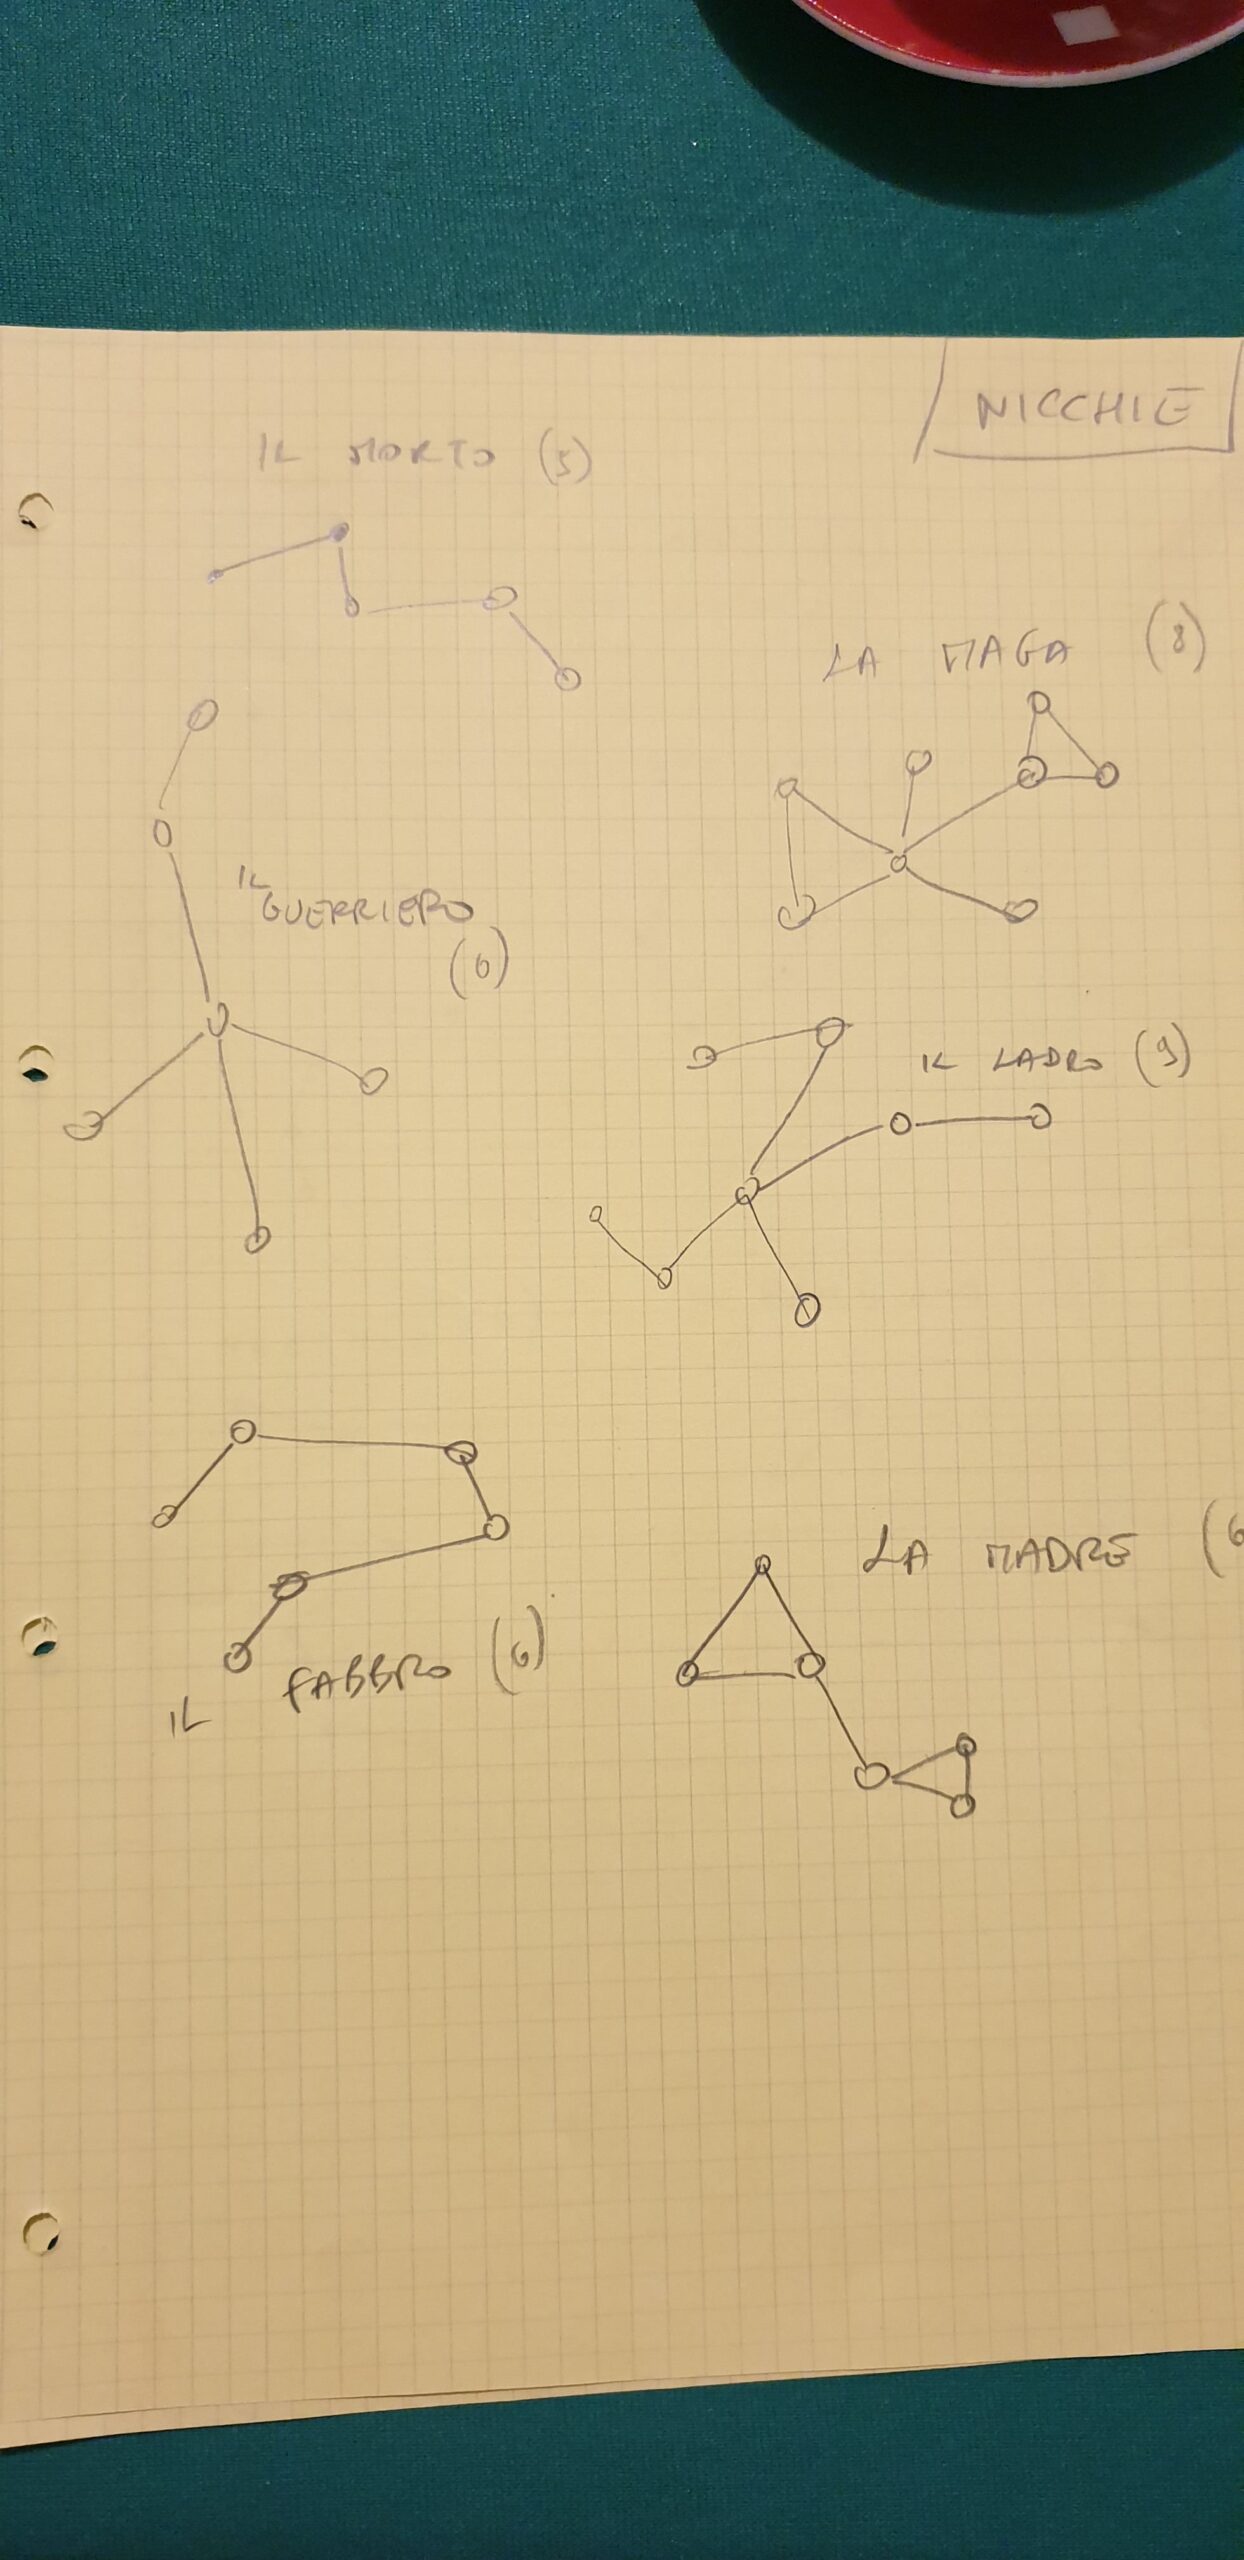 NICCHIE
IL MORTO (5)
LA MAGA (8)
IL
GUERRIERO
(6)
IL LADRO (9)
LA MADRE (6
IL FABBRO (6)